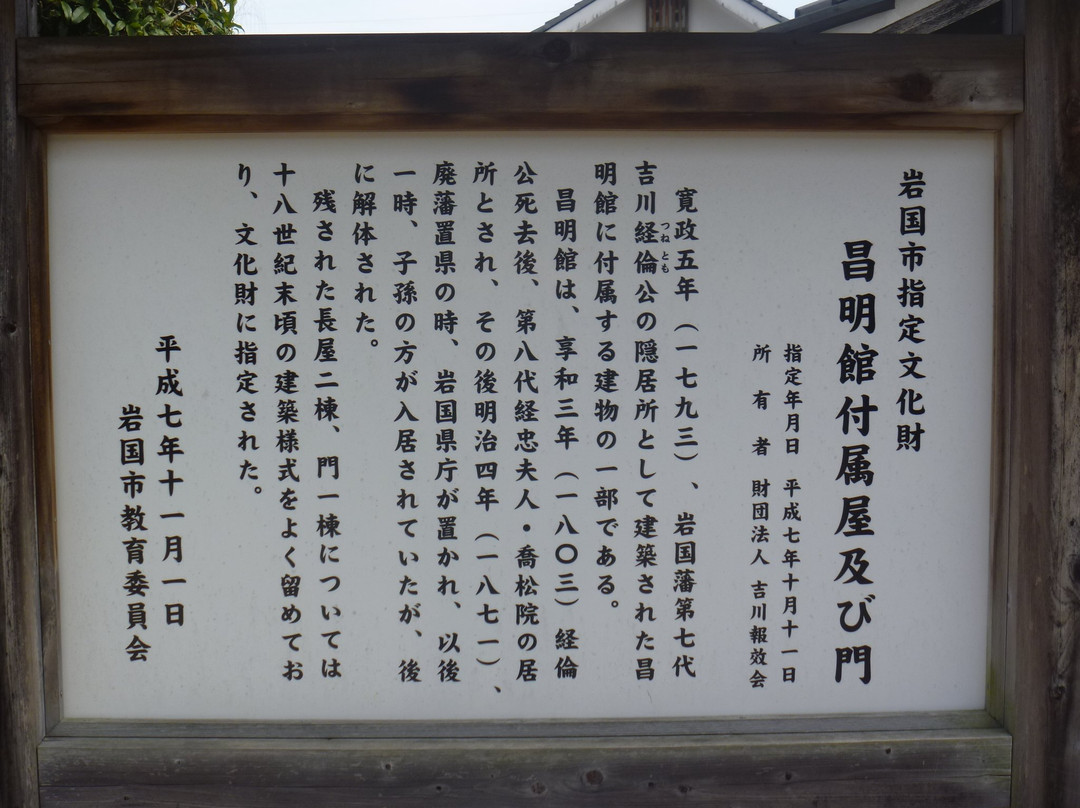 岩国市指定文化財
昌明館付属屋及び門
指定年月日 平成七年十月十一日
所有者 財団法人 吉川報效会
寛政五年（一七九三）、岩国藩第七代
吉川経倫公の隠居所として建築された昌
つねとも
明館に付属する建物の一部である。
昌明館は、享和三年（一八〇三）経倫
公死去後、第八代経忠夫人・喬松院の居
所とされ、その後明治四年（一八七一）、
廃藩置県の時、岩国県庁が置かれ、以後
一時、子孫の方が入居されていたが、後
に解体された。
残された長屋二棟、門一棟については
十八世紀末頃の建築様式をよく留めてお
り、文化財に指定された。
平成七年十一月一日
岩国市教育委員会